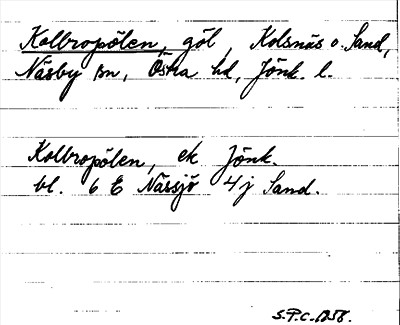 Kolbropölen, göl, Kolsnäs o. Sand,
Näsby sn, Östra hd, Jönk. l.
Kolbropölen, ek Jönk.
bl. 6 E Nässjö 4j Sand.
S.P.C. 1258.